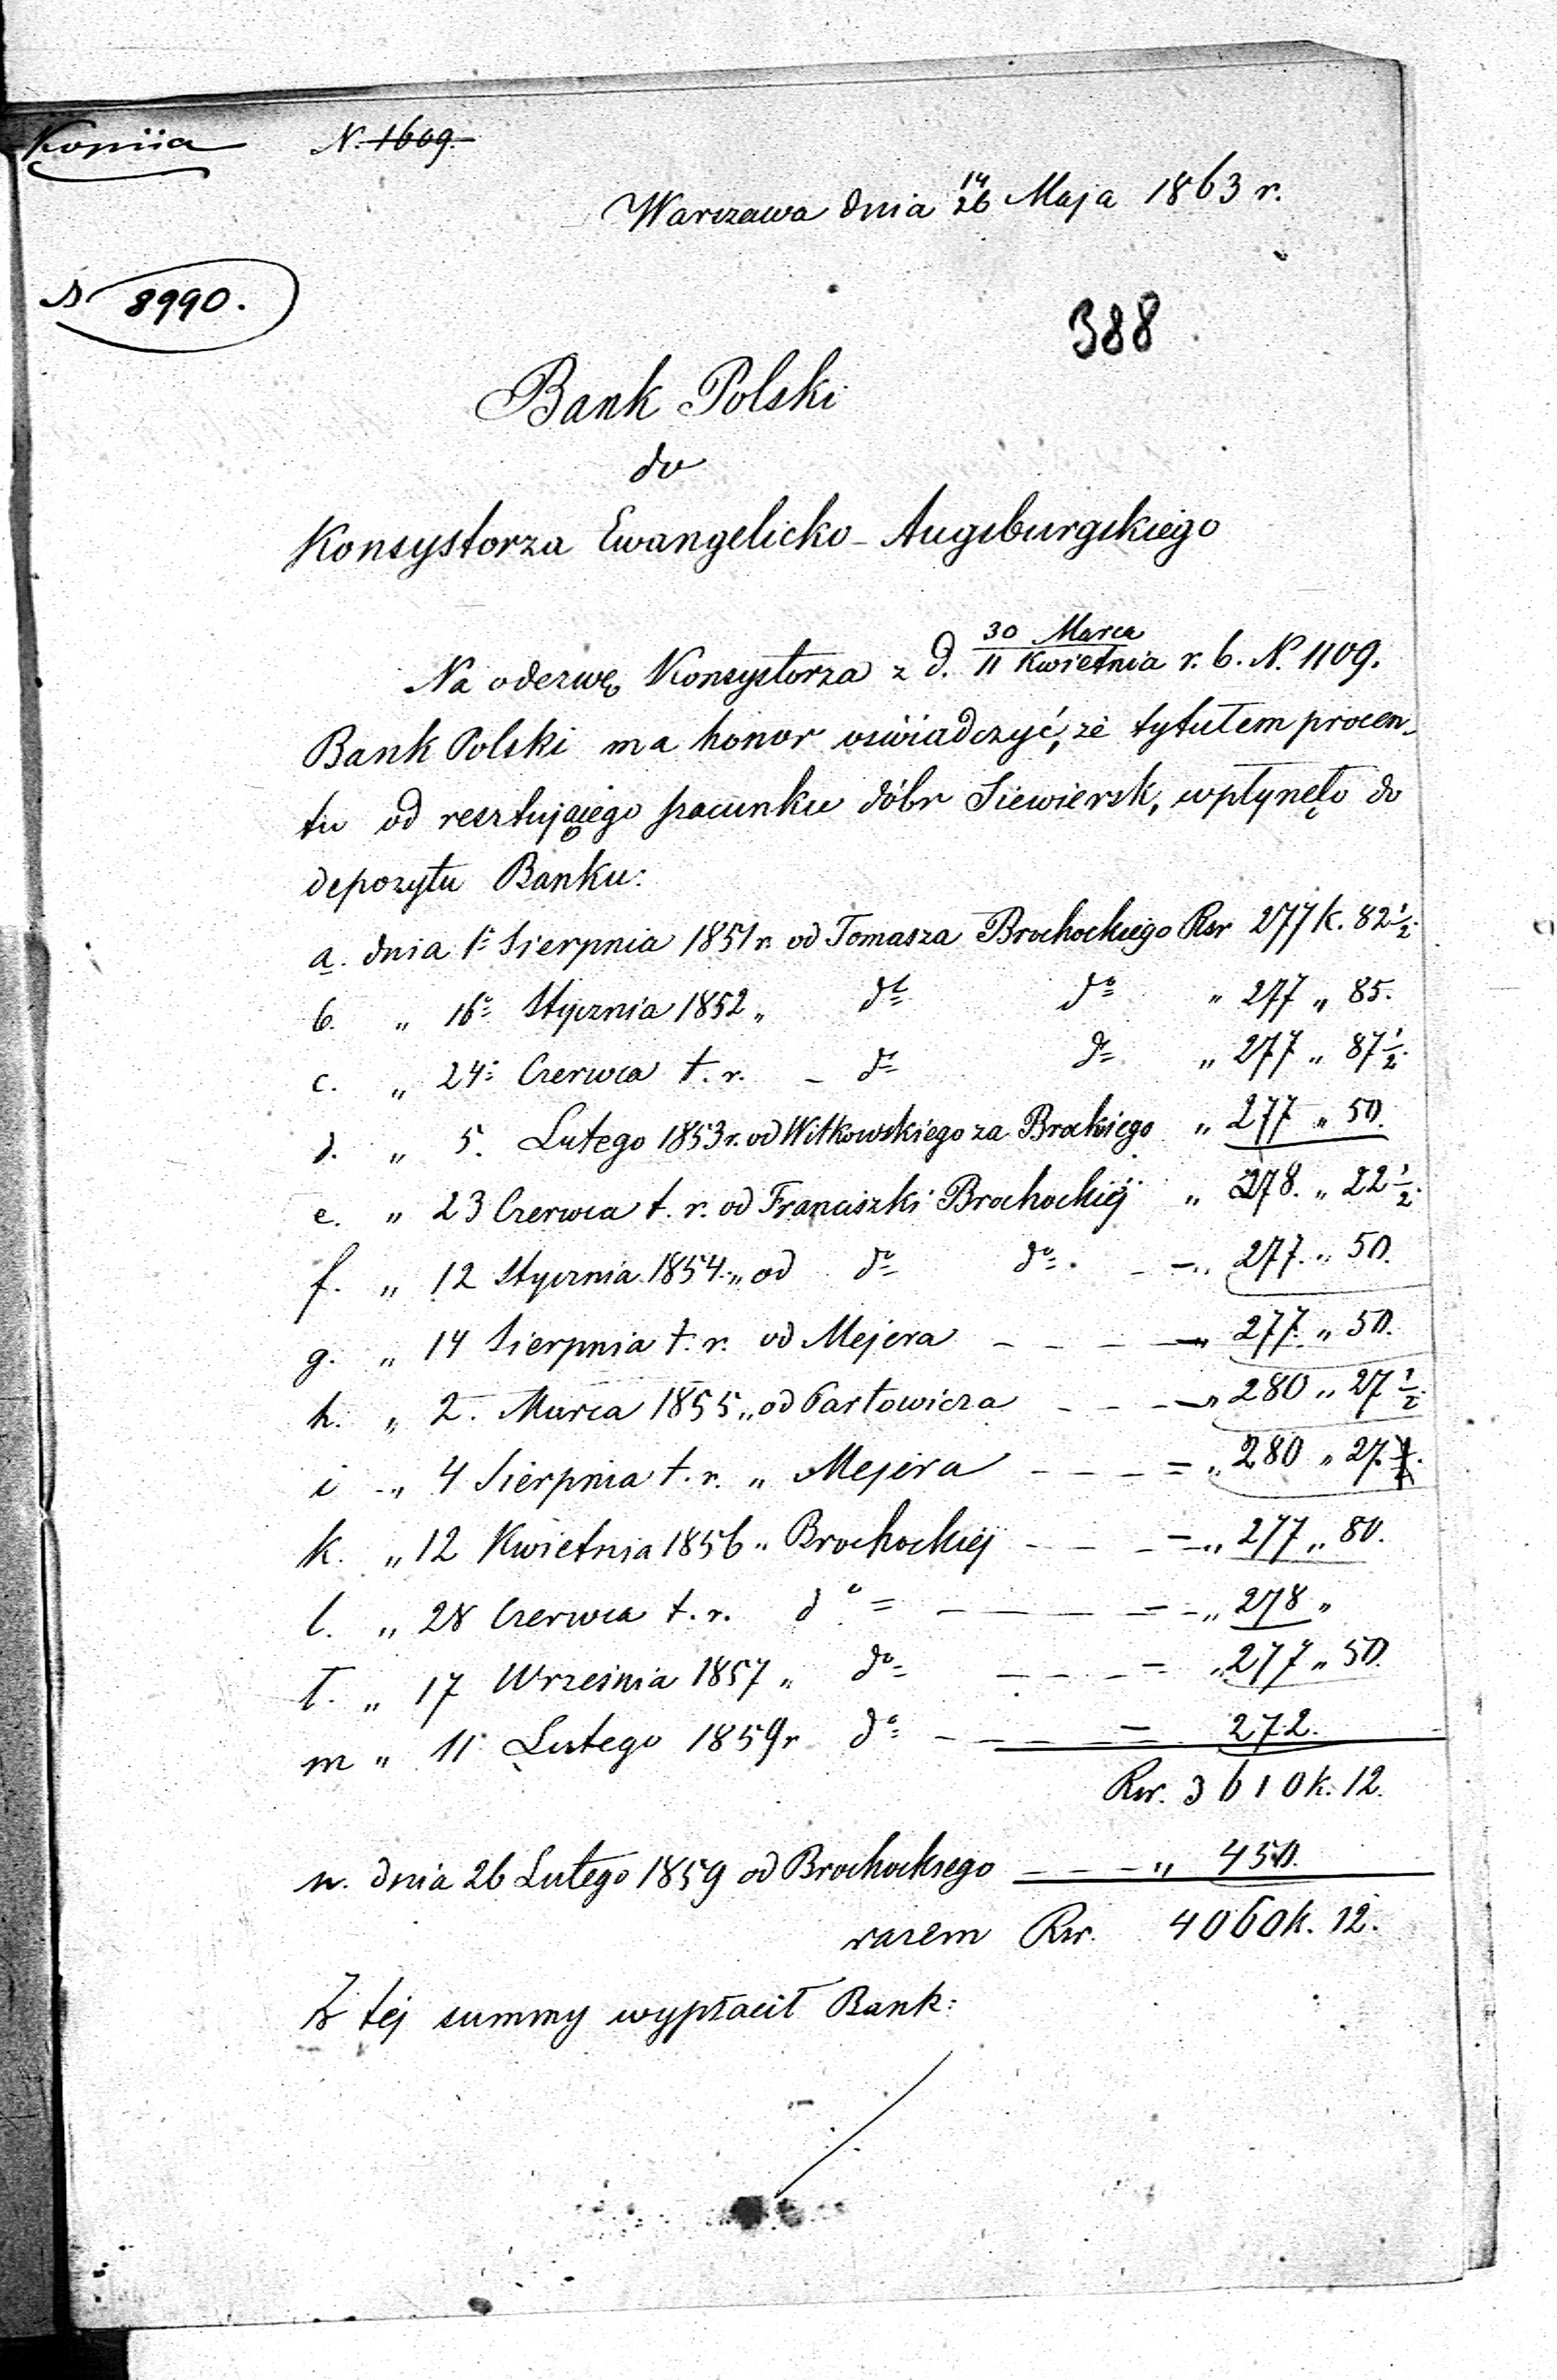 Kopiia N. 1609.
Warszawa dnia 14/26 Maja 1863 r.
N 8990.
388
Bank Polski
do
Konsystorza Ewangelicko-Augsburgskiego
Na odezwę Konsystorza z d. 30 Marca / 11 Kwietnia r. b. N. 1109.
Bank Polski ma honor oświadczyć, że tytułem procen-
tu od resztującego szacunku dóbr Siewiersk, wpłynęło do
depozytu Banku:
a. dnia 1º Sierpnia 1851 r. od Tomasza Brochockiego Rsr 277 k. 82½.
b. „ 16º Stycznia 1852 „ dº dº „ 277 „ 85.
c. „ 24º Czerwca t. r. – dº dº „ 277 „ 87½.
d. „ 5. Lutego 1853 r. od Witkowskiego za Brockiego „ 277 „ 50.
e. „ 23 Czerwca t. r. od Franciszki Brochockiéj „ 278. „ 22½.
f. „ 12 Stycznia 1854 „ od dº dº – – „ 277. „ 50.
g. „ 14 Sierpnia t. r. od Mejera – – – – „ 277. „ 50.
h. „ 2. Marca 1855 „ od Partowicza – – – „ 280 „ 27½.
i „ 4 Sierpnia t. r. „ Mejera – – – = „ 280 „ 27.
k. „ 12 Kwietnia 1856 „ Brochockiéj – – – = „ 277 „ 80.
l. „ 28 Czerwca t. r. dº = – – – – – „ 278 „
ł. „ 17 Września 1857 „ dº – – – = „ 277 „ 50.
m „ 11 Lutego 1859 r dº – – – – = 272.
Rsr. 3610 k. 12.
n. dnia 26 Lutego 1859 od Brochockiego – – – „ 450.
razem Rsr. 4060 k. 12.
Z téj summy wypłacił Bank: